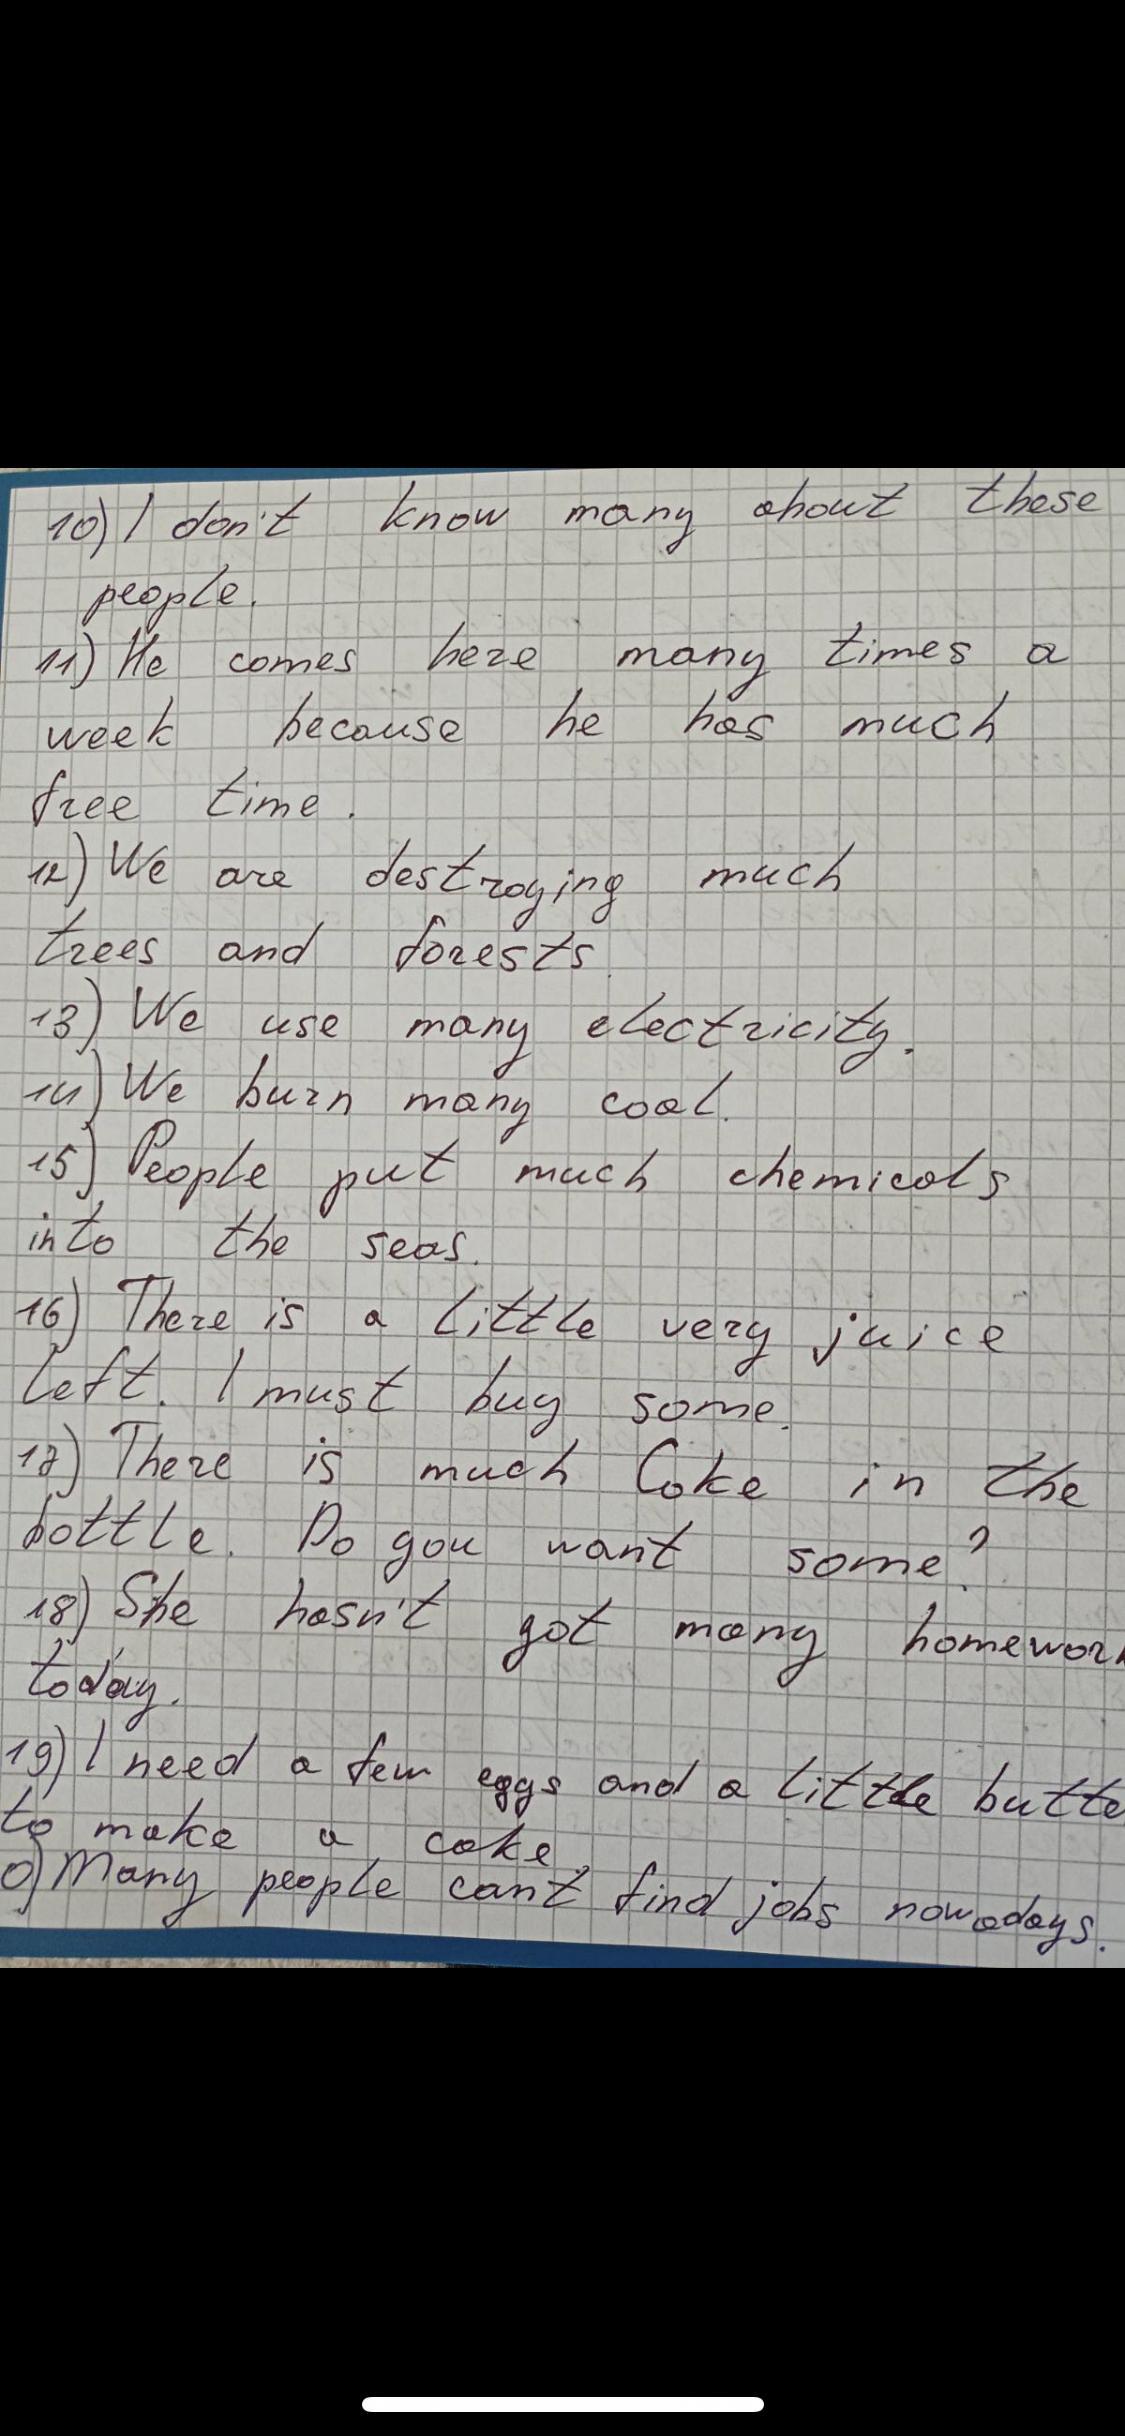 10) I don't know many about these
people.
11) He comes here many times a
week because he has much
free time.
12) We are destroying much
trees and forests.
13) We use many electricity.
14) We burn many coal.
15) People put much chemicals
into the seas.
16) There is a little very juice
left. I must buy some.
17) There is much Coke in the
bottle. Do you want some?
18) She hasn't got many homework
today.
19) I need a few eggs and a little butte
to make a cake.
0) Many people can't find jobs nowadays.